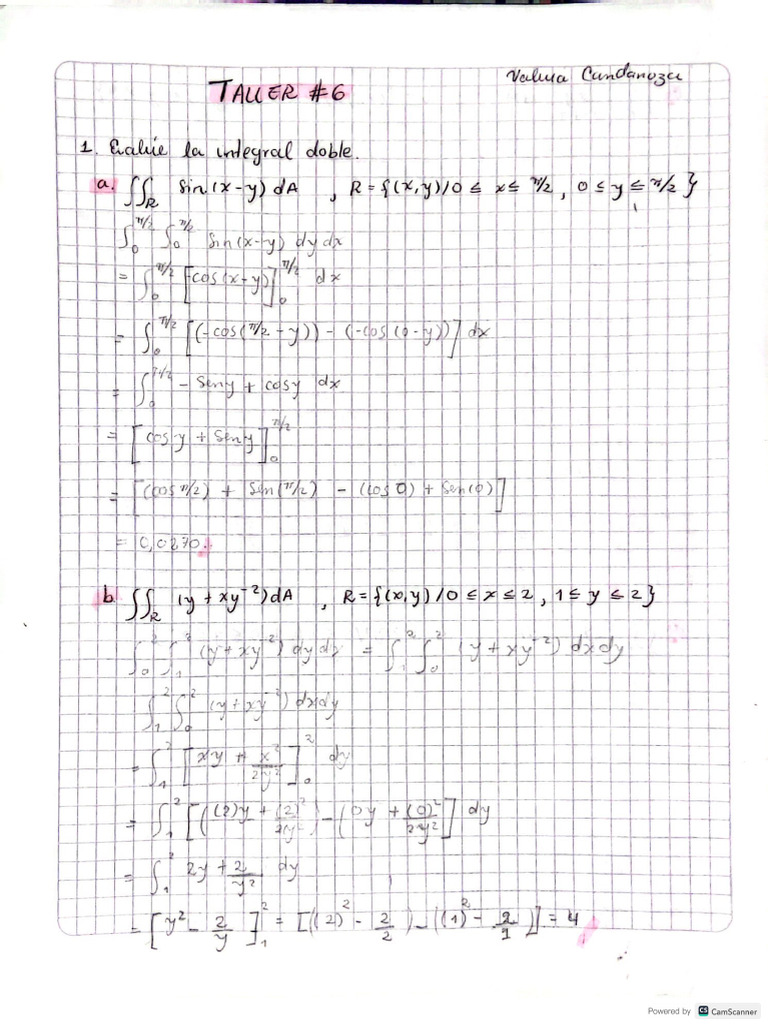 TALLER #6
Valeria Cundanoza
1. Evalúe la integral doble.
a. ∬_R sin(x-y) dA , R = {(x,y)/0 ≤ x ≤ π/2, 0 ≤ y ≤ π/2}
∫_0^{π/2} ∫_0^{π/2} sin(x-y) dy dx
= ∫_0^{π/2} [-cos(x-y)]_0^{π/2} dx
= ∫_0^{π/2} [(-cos(π/2 - y)) - (-cos(0-y))] dx
= ∫_0^{π/2} - Seny + cosy dx
= [cosy + Seny]_0^{π/2}
= [(cos π/2) + Sen(π/2) - (cos 0) + Sen(0)]
= 0,0270.
b ∬_R (y + xy^{-2}) dA , R = {(x,y)/0 ≤ x ≤ 2, 1 ≤ y ≤ 2}
∫_0^2 ∫_1^2 (y + xy^{-2}) dy dx = ∫_1^2 ∫_0^2 (y + xy^{-2}) dx dy
∫_1^2 ∫_0^2 (y + xy^{-2}) dx dy
= ∫_1^2 [xy + x^2/2y^2]_0^2 dy
= ∫_1^2 [((2)y + (2)^2/2y^2) - (0y + (0)^2/2y^2] dy
= ∫_1^2 2y + 2/y^2 dy
= [y^2 - 2/y]_1^2 = [((2)^2 - 2/2) - ((1)^2 - 2/1)] = 4
Powered by CS CamScanner